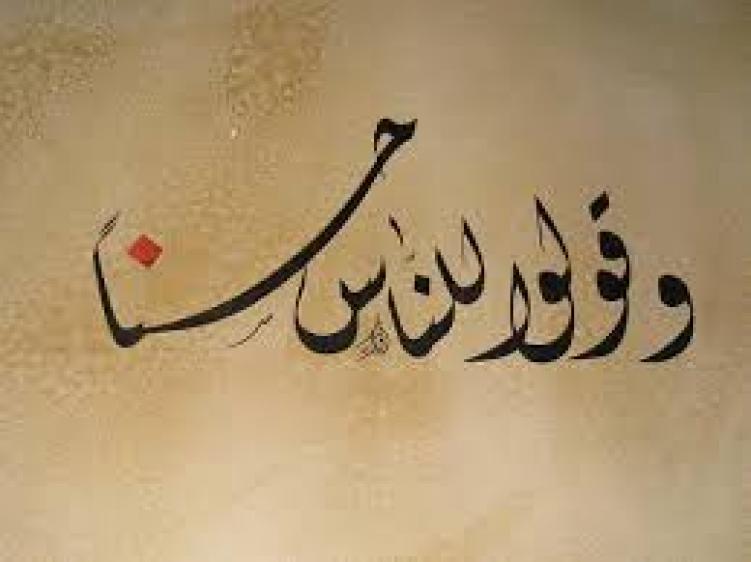 وقولوا للناس حسناً